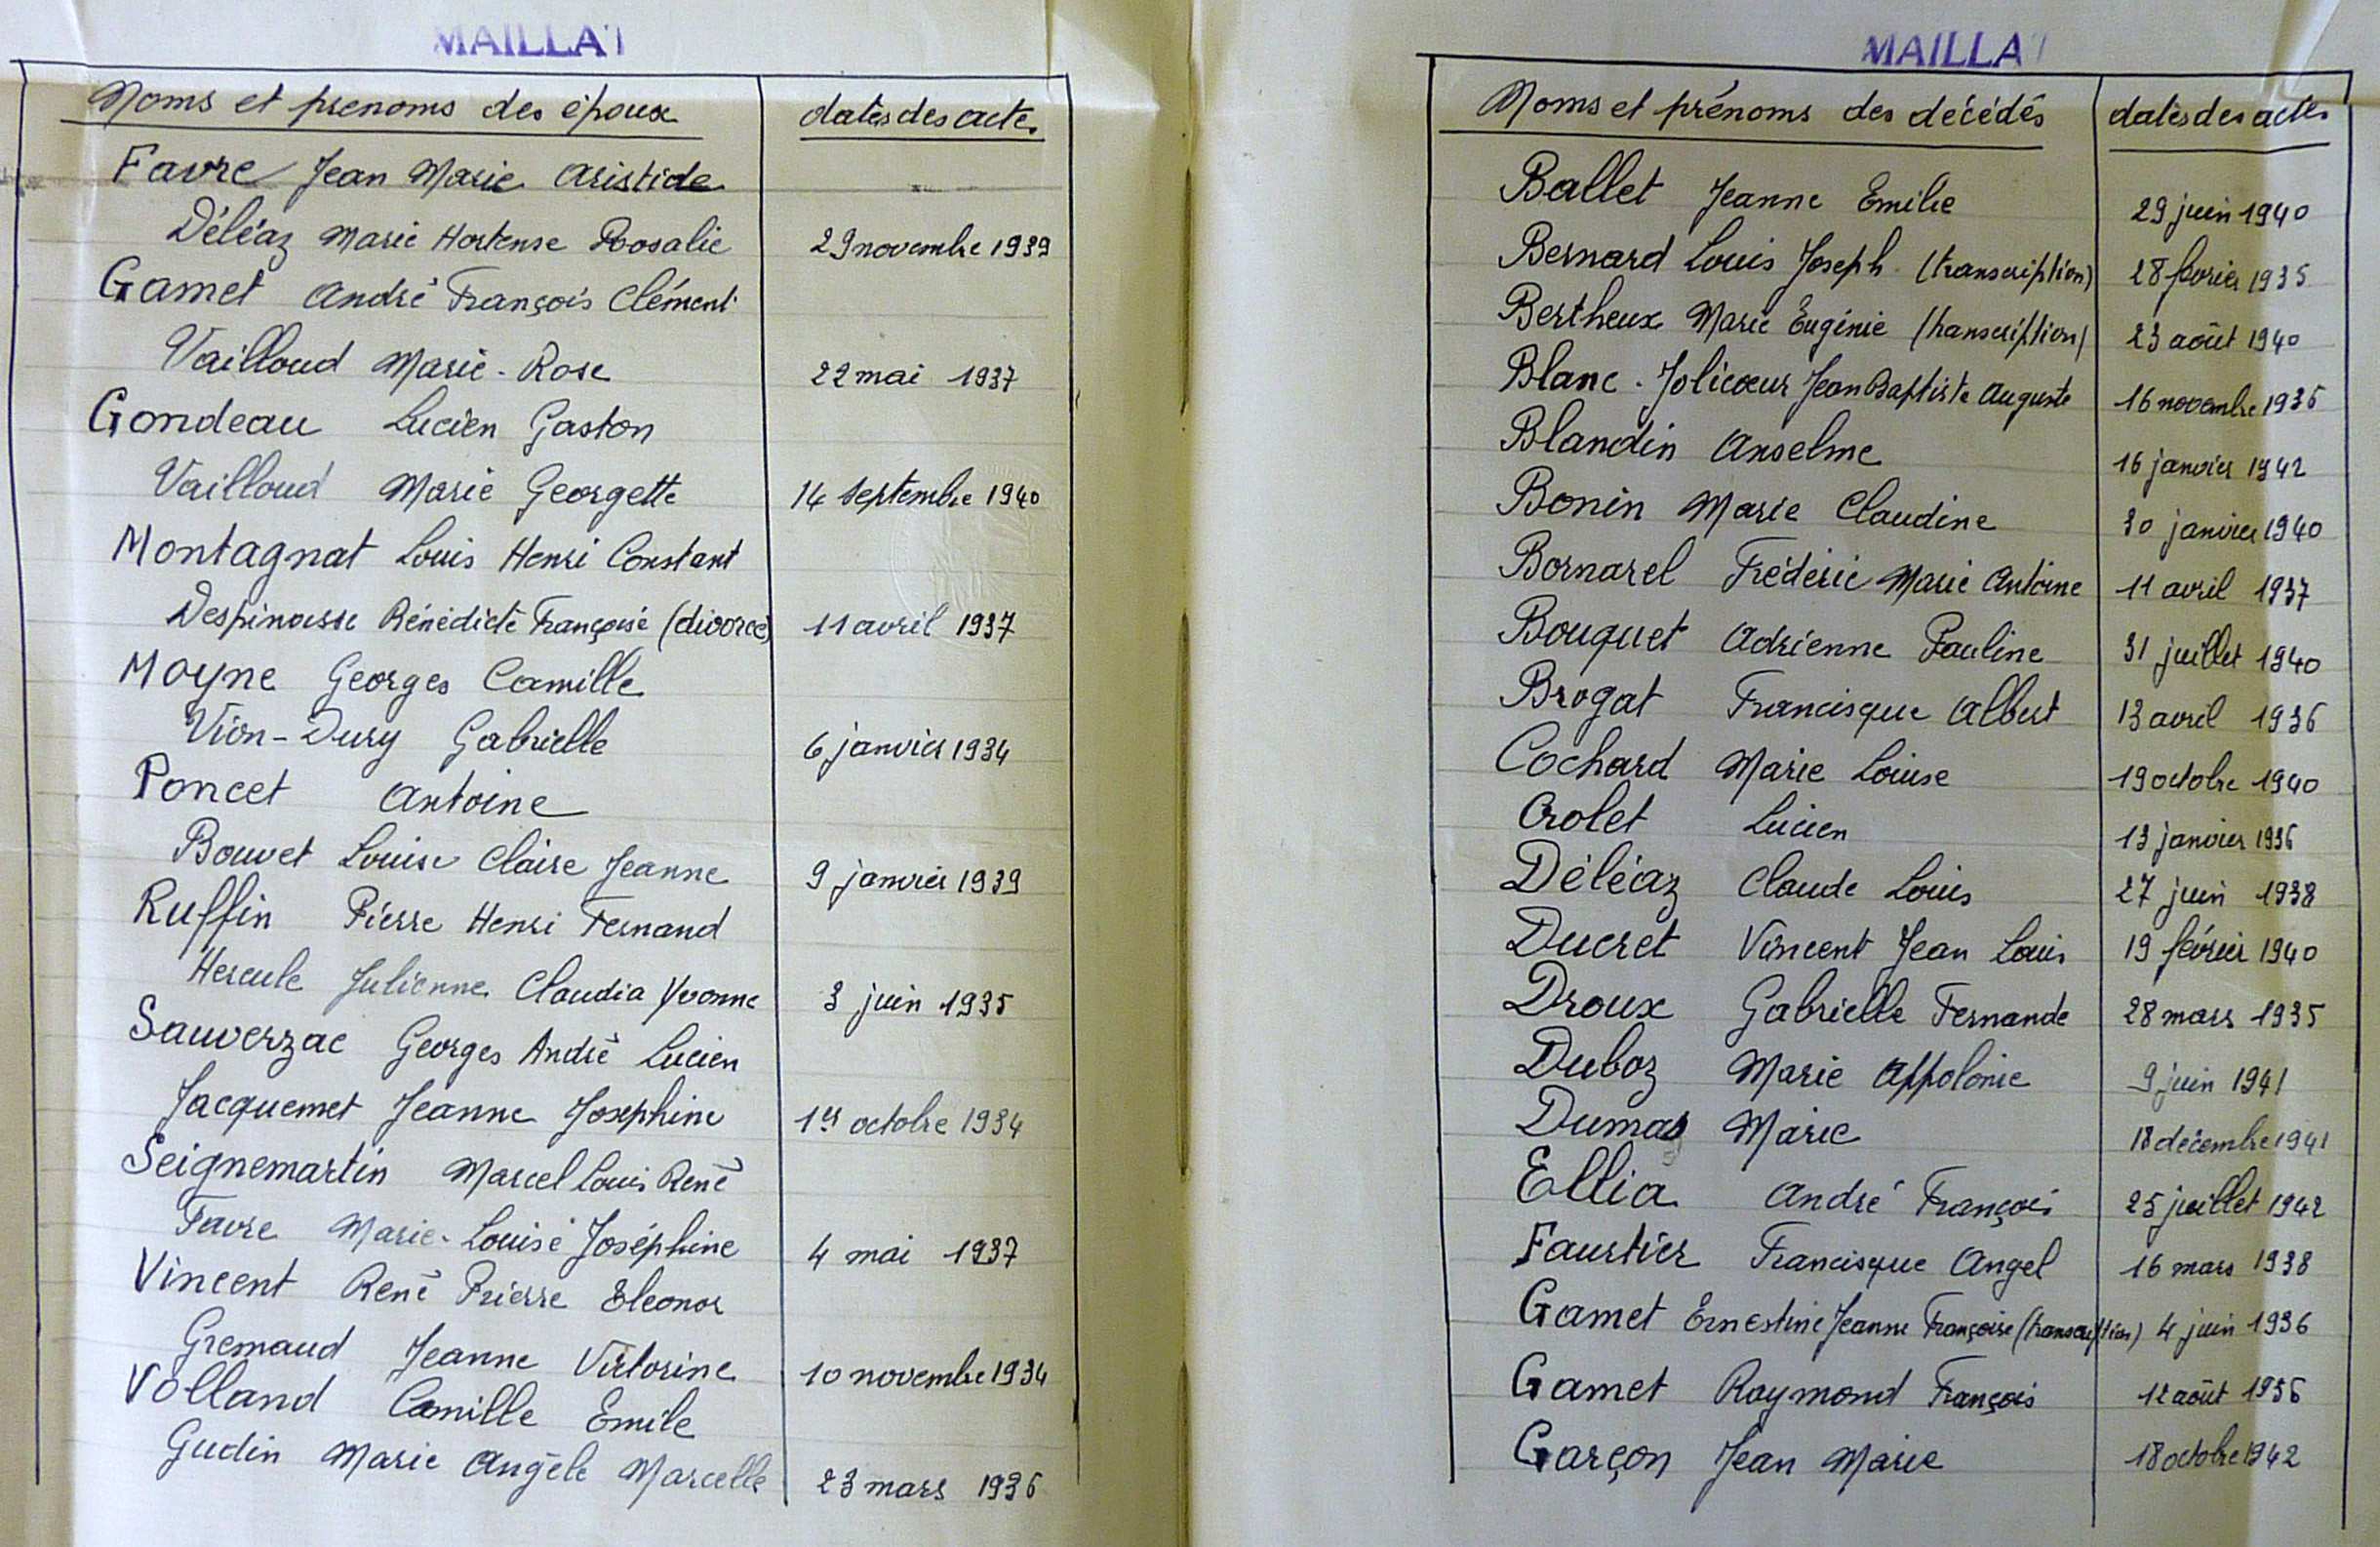 MAILLAT
Noms et prenoms des époux dates des actes
Favre Jean Marie Aristide
Déléaz Marie Hortense Rosalie 29 novembre 1939
Gamet André François Clément
Vailloud Marie-Rose 22 mai 1937
Gondeau Lucien Gaston
Vailloud Marie Georgette 14 septembre 1940
Montagnat Louis Henri Constant
Despinasse Bénédicte Françoise (divorce) 11 avril 1937
Moyne Georges Camille
Vion-Dury Gabrielle 6 janvier 1934
Poncet Antoine
Bouvet Louise Claire Jeanne 9 janvier 1939
Ruffin Pierre Henri Fernand
Hercule Julienne Claudia Yvonne 3 juin 1935
Sauverzac Georges André Lucien
Jacquemet Jeanne Josephine 1er octobre 1934
Seignemartin Marcel Louis René
Favre Marie-Louise Joséphine 4 mai 1937
Vincent René Pierre Eleonor
Gremaud Jeanne Victorine 10 novembre 1934
Volland Camille Emile
Gudin Marie Angèle Marcelle 23 mars 1936
MAILLAT
Noms et prénoms des décédés dates des actes
Ballet Jeanne Emilie 29 juin 1940
Bernard Louis Joseph (transcription) 28 février 1935
Bertheux Marie Eugénie (transcription) 23 août 1940
Blanc-Jolicoeur Jean Baptiste Auguste 16 novembre 1936
Blandin Anselme 16 janvier 1942
Bonin Marie Claudine 30 janvier 1940
Bornarel Frédéric Marie Antoine 11 avril 1937
Bouquet Adrienne Pauline 31 juillet 1940
Brogat Francisque Albert 13 avril 1936
Cochard Marie Louise 19 octobre 1940
Crolet Lucien 13 janvier 1936
Déléaz Claude Louis 27 juin 1938
Ducret Vincent Jean Louis 19 février 1940
Droux Gabrielle Fernande 28 mars 1935
Duboz Marie Appolonie 9 juin 1941
Dumas Marie 18 décembre 1941
Ellia André François 25 juillet 1942
Faustier Francisque Angel 16 mars 1938
Gamet Ernestine Jeanne Françoise (transcription) 4 juin 1936
Gamet Raymond François 12 août 1936
Garçon Jean Marie 18 octobre 1942